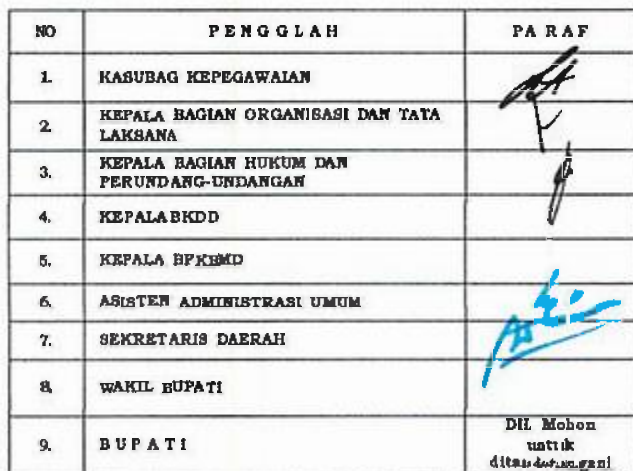 NO PENGGLAH PARAF
1. KASUBAG KEPEGAWAIAN
2. KEPALA BAGIAN ORGANISASI DAN TATA
LAKSANA
3. KEPALA BAGIAN HUKUM DAN
PERUNDANG-UNDANGAN
4. KEPALA BKDD
5. KEPALA BPKBMD
6. ASISTEN ADMINISTRASI UMUM
7. SEKRETARIS DAERAH
8. WAKIL BUPATI
9. BUPATI
DII. Mohon
untuk
ditandatangani